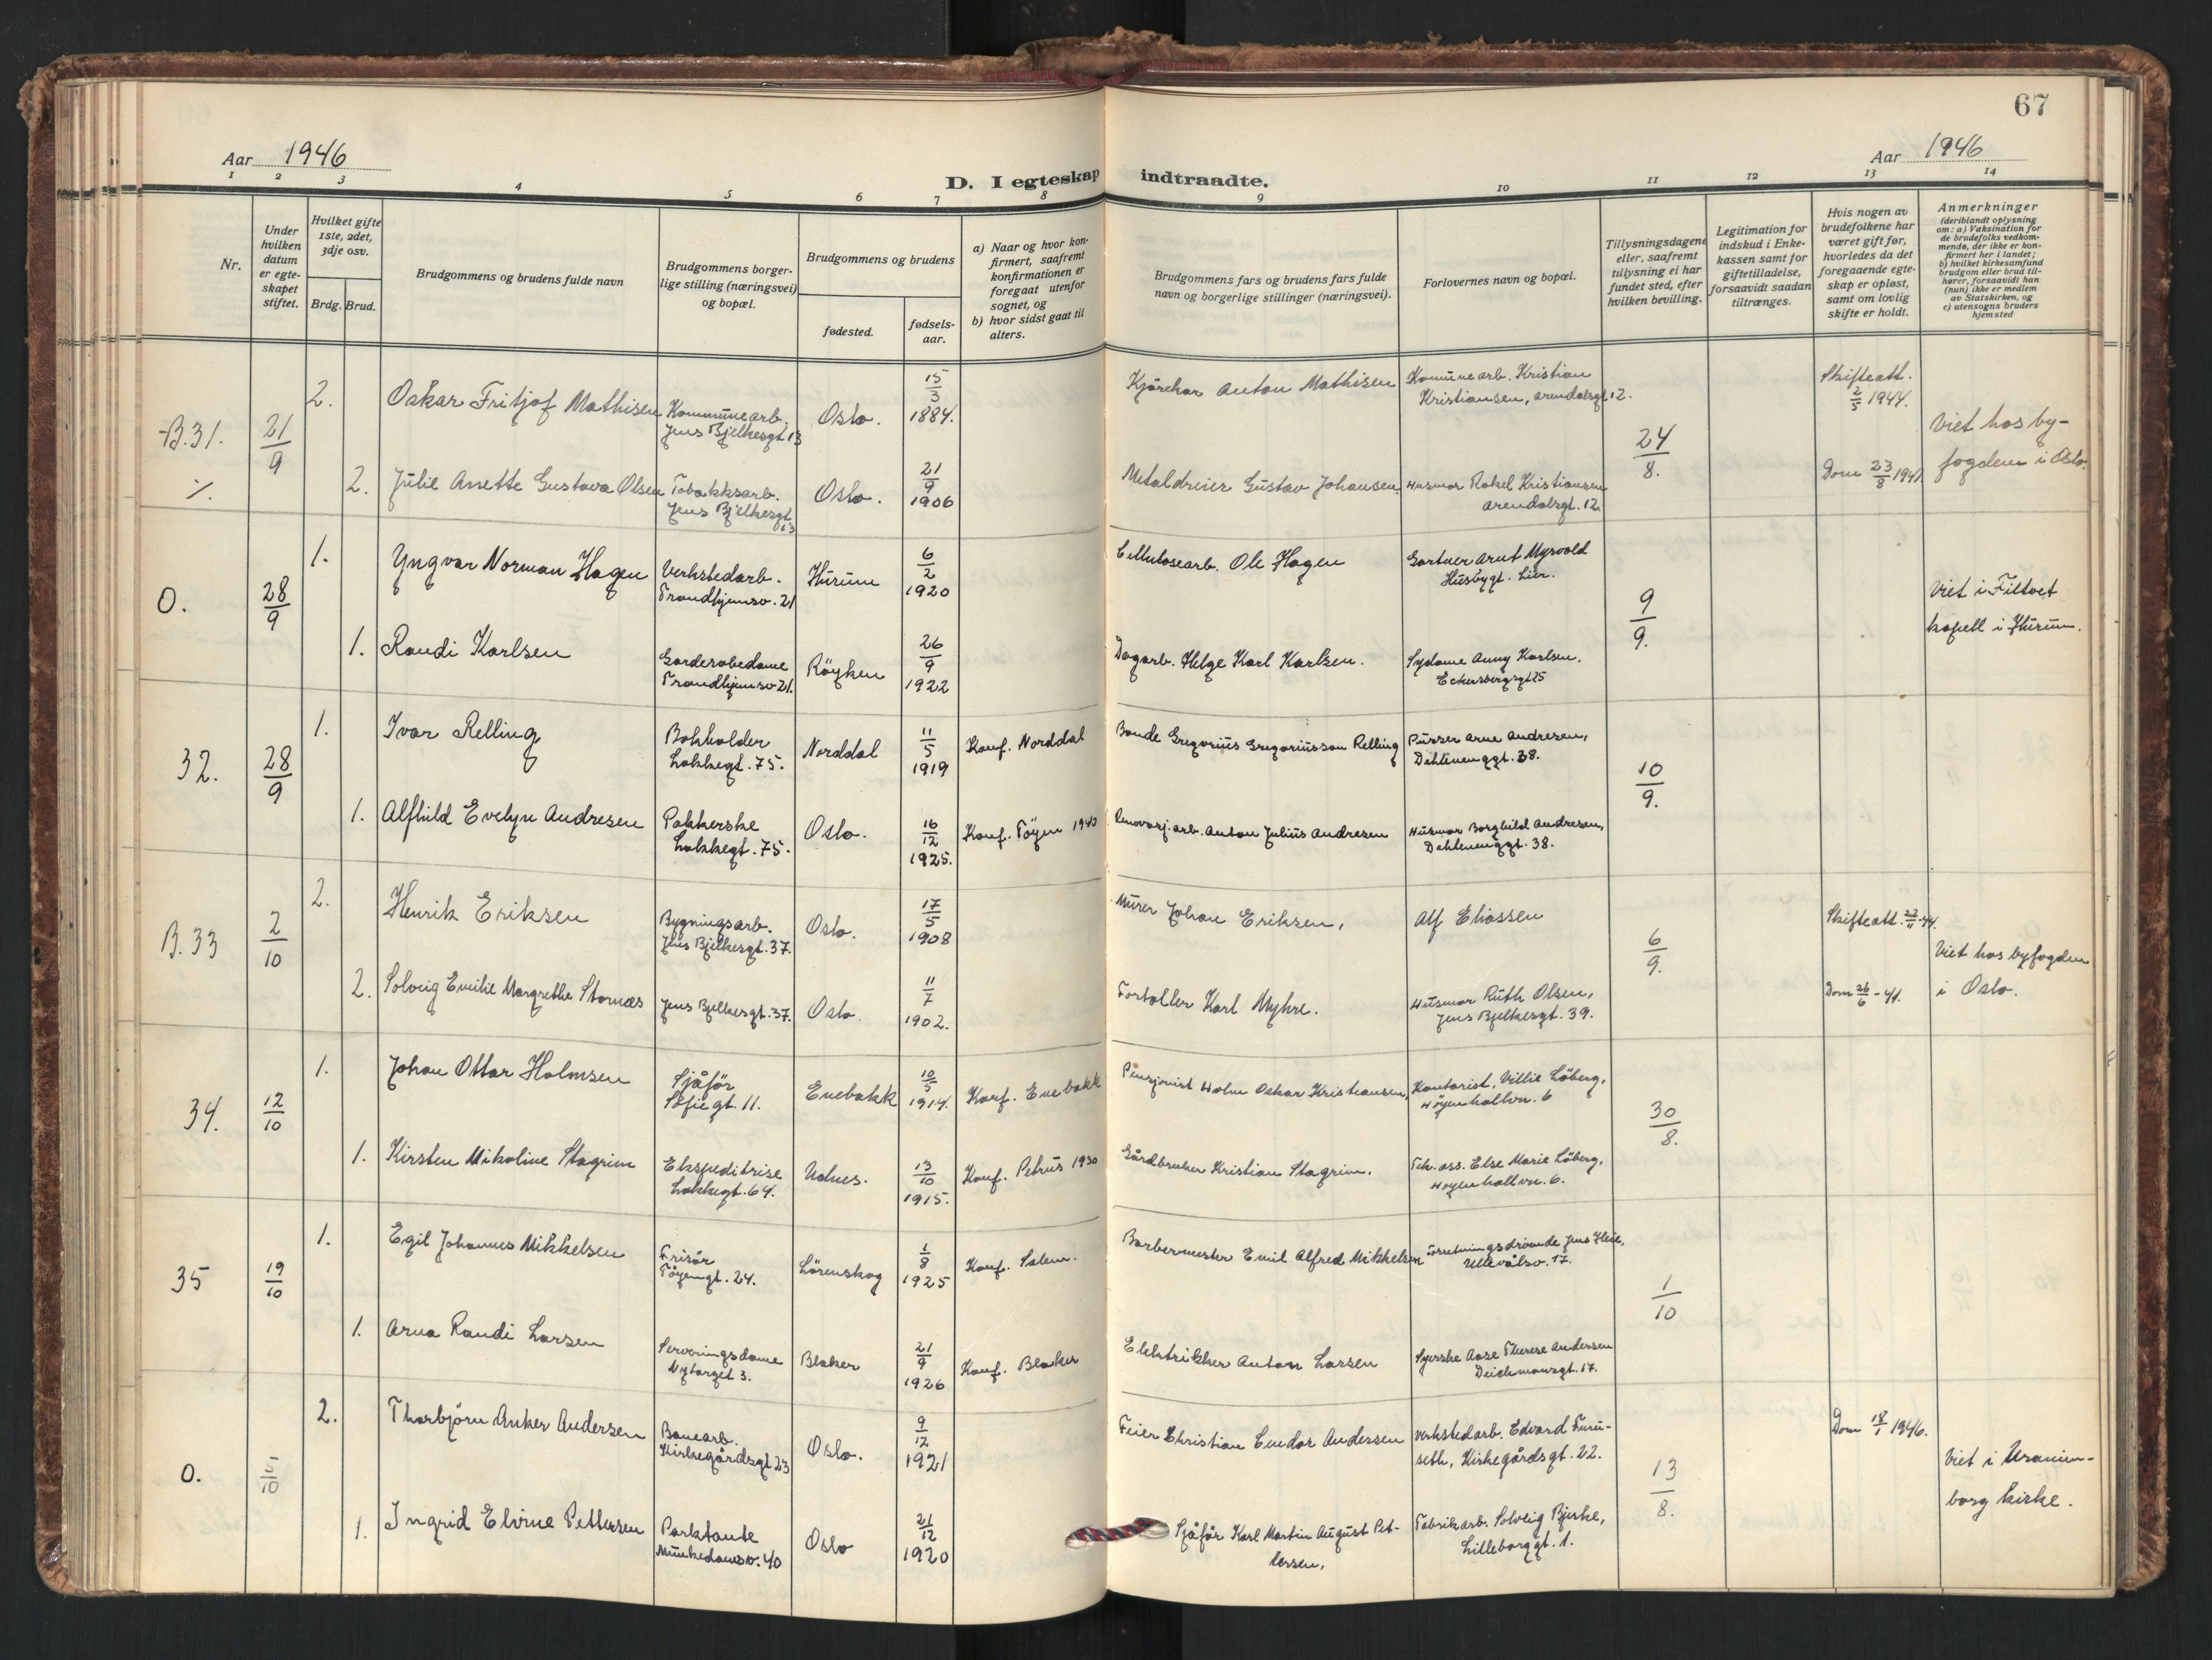 67
Aar 1946
Aar 1946
D. I egteskap indtraadte.
1 2 3 4 5 6 7 8 9 10 11 12 13 14
Nr.
Under hvilken datum er egteskapet stiftet.
Hvilket gifte 1ste, 2det, 3dje osv.
Brdg. Brud.
Brudgommens og brudens fulde navn
Brudgommens borgerlige stilling (næringsvei) og bopæl.
Brudgommens og brudens
fødested.
fødselsaar.
a) Naar og hvor konfirmert, saafremt konfirmationen er foregaat utenfor sognet, og
b) hvor sidst gaat til alters.
Brudgommens fars og brudens fars fulde navn og borgerlige stillinger (næringsvei).
Forlovernes navn og bopæl.
Tillysningsdagene eller, saafremt tillysning ei har fundet sted, efter hvilken bevilling.
Legitimation for indskud i Enkekassen samt for giftetilladelse, forsaavidt saadan tiltrænges.
Hvis nogen av brudefolkene har været gift før, hvorledes da det foregaaende egteskap er opløst, samt om lovlig skifte er holdt.
Anmerkninger (deriblandt oplysning om: a) Vaksination for de brudefolks vedkommende, der ikke er konfirmert her i landet; b) hvilket kirkesamfund brudgom eller brud tilhører, forsaavidt han (hun) ikke er medlem av Statskirken, og c) utensogns bruders hjemsted
B.31. 21/9 2. Oskar Fritjof Mathisen Kommunearb. Jens Bjelkesgt. 13 Oslo. 15/3 1884. Kjørekar Anton Mathisen Komunearb. Kristian Kristiansen, Arendalsgt. 12. 24/8. Skifteatt. 2/5 1944. Viet hos byfogden i Oslo.
./. 2. Julie Anette Gustava Olsen Tobakksarb. Jens Bjelkesgt. 13 Oslo. 21/9 1906 Metaldreier Gustav Johansen. Husmor Rakel Kristiansen Arendalsgt. 12. Dom 23/8 1941.
O. 28/9 1. Yngvar Norman Hagen Verkstedarb. Trondhjemsv. 21 Hurum 6/2 1920 Cellulosearb. Ole Hagen Gartner Arnt Myrvold Husbygt. Lier. 9/9. Viet i Filtvet kapell i Hurum.
1. Randi Karlsen Garderobedame Trondhjemsv 21. Röyken 26/9 1922 Dagarb. Helge Karl Karlsen. Sydame Anny Karlsen. Eckersbergsgt 25
32. 28/9 1. Ivar Relling Bokholder Lakkegt. 75. Norddal 11/5 1919 Konf. Norddal Bonde Gregorius Gregoriusson Relling Pusser Arne Andresen, Dehlenenggt. 38. 10/9.
1. Alfhild Evelyn Andresen Pakkerske Lakkegt. 75. Oslo. 16/12 1925. Konf. Töyen 1940 Renovasj. arb. Anton Julius Andresen Husmor Borghild Andresen, Dehlenenggt. 38.
B.33 2/10 2. Henrik Eriksen Bygningsarb. Jens Bjelkesgt. 37. Oslo. 17/5 1908 Murer Johan Eriksen, Alf Eliassen 6/9. Skifteatt. 22/11 -44. Viet hos byfogden i Oslo.
2. Solveig Emilie Margrethe Stornæs Jens Bjelkesgt. 37. Oslo. 11/7 1902. Fortoller Karl Myhre. Husmor Ruth Olsen, Jens Bjelkesgt. 39. Dom 26/6 -41.
34. 12/10 1. Johan Ottar Holmsen Sjåför Sofiegt. 11. Enebakk 10/5 1914. Konf. Enebakk Pensjonist Holm Oskar Kristiansen, Kontorist, Villie Löberg, Höyenhallvn. 6 30/8.
1. Kirsten Mikoline Stagrim Ekspeditrise Lakkegt. 64. Udnes. 13/10 1915. Konf. Petrus 1930 Gårdbruker Kristian Stagrim. Tek. ass. Else Marie Löberg, Höyenhallvn. 6.
35 19/10 1. Egil Johannes Mikkelsen Frisör Töyengt. 24. Lörenskog 1/8 1925 Konf. Salem. Barbermester Emil Alfred Mikkelsen Forretningsdrivende Jens Heie, Ullevålsv. 17. 1/10
1. Arna Randi Larsen Serveringsdame Nytorget 3. Blaker 21/9 1926 Konf. Blaker Elektrikker Anton Larsen Syerske Aase Therese Andersen Deichmansgt. 17.
O. 5/10 2. Thorbjörn Anker Andersen Banearb. Kirkegårdsgt 23 Oslo. 9/12 1921 Feier Christian Eindar Andersen Verkstedarb. Edvard Furuseth, Kirkegårdsgt. 22. 13/8. Dom 18/1 1946. Viet i Uranienborg kirke.
1. Ingrid Elvine Pettersen Parktante Munkedamsv. 40 Oslo 21/12 1920 Sjåför Karl Martin August Pettersen, Fabrikarb. Solveig Bjerke, Lilleborggt. 1.